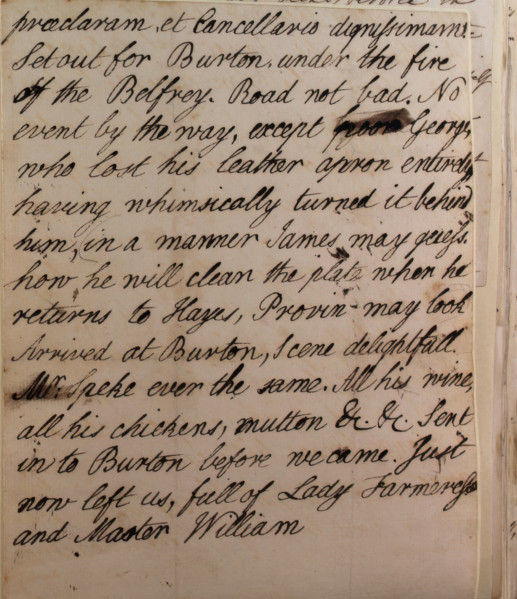 præclaram, et Cancellario dignissimam-
Set out for Burton, under the fire
of the Belfrey. Road not bad. No
event by the way, except poor George,
who lost his leather apron entirely,
having whimsically turned it behind
him, in a manner James may guess.
how he will clean the plate when he
returns to Hayes, Provin may look
Arrived at Burton, Scene delightfull.
Mr. Speke ever the same. All his wine,
all his chickens, mutton &c. &c. Sent
in to Burton before we came. Just
now left us, full of Lady Farmeress
and Master William